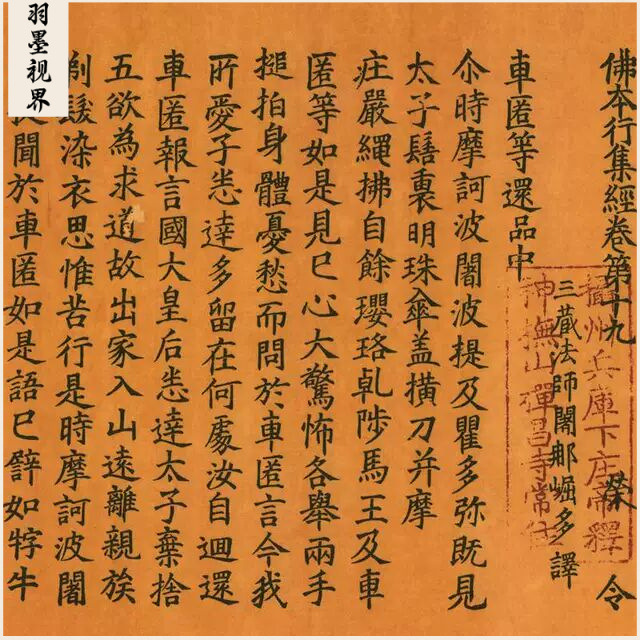 羽墨视界
佛本行集經卷第十九 榮 令
三藏法師闍那崛多譯
車匿等還品中
尒時摩訶波闍波提及瞿多弥既見
太子髻裏明珠傘盖横刀并摩
庄嚴繩拂自餘瓔珞乹陟馬王及車
匿等如是見已心大驚怖各舉兩手
搥拍身體憂愁而問於車匿言今我
所愛子悉達多留在何處汝自迴還
車匿報言國大皇后悉達太子棄捨
五欲為求道故出家入山遠離親族
剃髮染衣思惟苦行是時摩訶波闍
提聞於車匿如是語已譬如牸牛
州兵庫下庄帝釋
神撫山禪昌寺常住